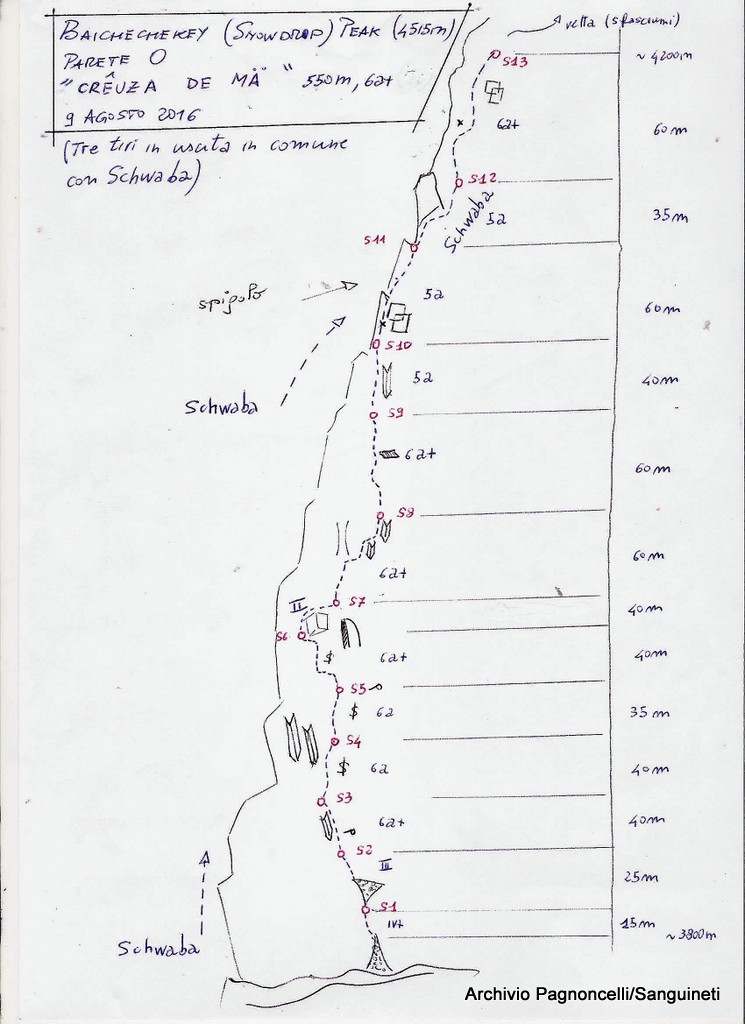 BAICHECHEKEY (SNOWDROP) PEAK (4515m)
PARETE O
"CRÊUZA DE MÄ" 550m, 6a+
9 AGOSTO 2016
(Tre tiri in uscita in comune
con Schwaba)
vetta (sfasciumi)
S13
~ 4200m
6a+
60m
S12
Schwaba
5a
35m
S11
5a
spigolo
60m
S10
Schwaba
5a
40m
S9
6a+
60m
S8
60m
6a+
II
S7
40m
S6
6a+
40m
S5
6a
35m
S4
6a
40m
S3
6a+
40m
S2
III
25m
S1
IV+
15m
~ 3800m
Schwaba
Archivio Pagnoncelli/Sanguineti